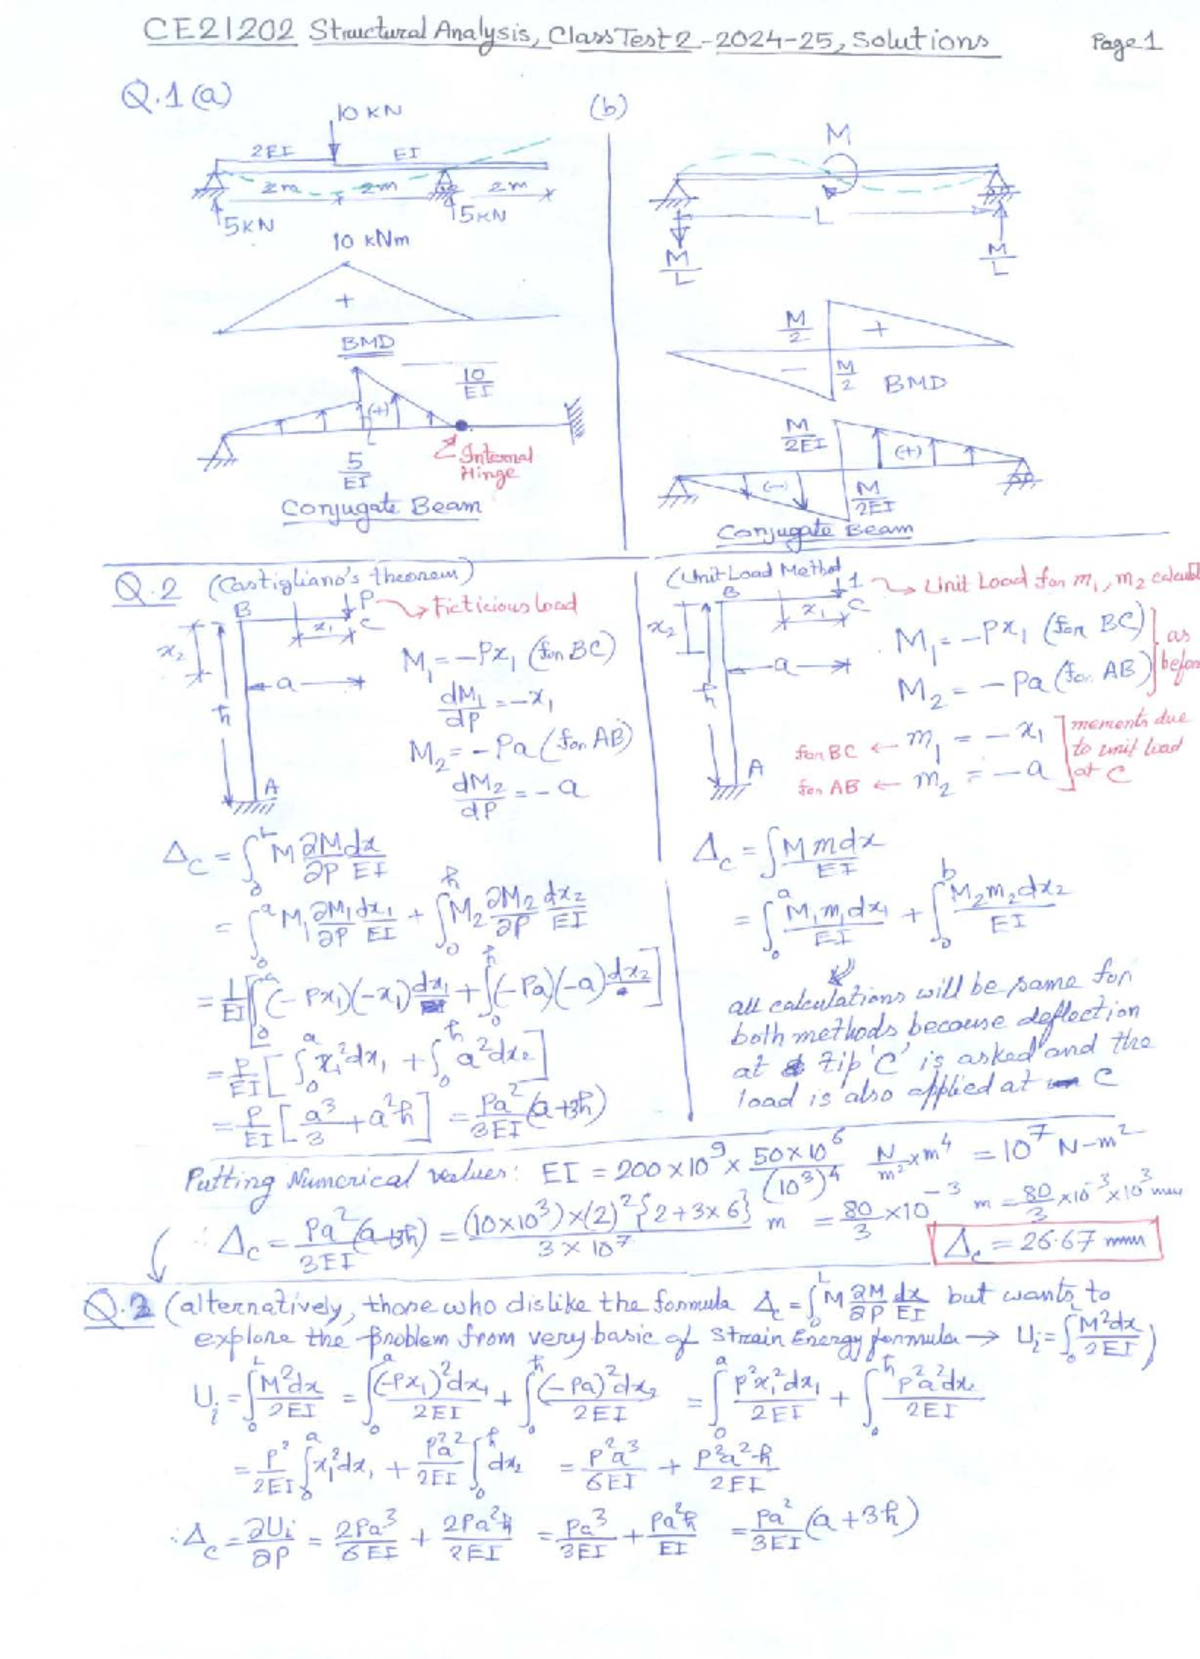 CE21202 Structural Analysis, Class Test 2 - 2024-25, Solutions Page 1
Q.1 (a)
10 KN
2EI EI
2m 2m 2m
5KN 5KN
10 kNm
+
BMD
10/EI
(+)
5/EI
Internal
Hinge
Conjugate Beam
(b)
M
L
M/L M/L
M/2 +
- M/2 BMD
M/2EI (+)
(-) M/2EI
Conjugate Beam
Q.2 (Castigliano's theorem)
B P → Ficticious load
x₁ C
x₂
a
h
A
M₁ = -Px₁ (for BC)
dM₁/dP = -x₁
M₂ = -Pa (for AB)
dM₂/dP = -a
Δc = ∫₀ᴸ M ∂M/∂P dx/EI
= ∫₀ᵃ M₁ ∂M₁/∂P dx₁/EI + ∫₀ʰ M₂ ∂M₂/∂P dx₂/EI
= 1/EI [∫₀ᵃ (-Px₁)(-x₁) dx₁ + ∫₀ʰ (-Pa)(-a) dx₂]
= P/EI [∫₀ᵃ x₁² dx₁ + ∫₀ʰ a² dx₂]
= P/EI [a³/3 + a²h] = Pa²/3EI (a+3h)
(Unit Load Method
B 1 → Unit Load for m₁, m₂ calcul
x₁ C
x₂
a
h
A
M₁ = -Px₁ (for BC)
M₂ = -Pa (for AB)
as
befor
for BC ← m₁ = -x₁
for AB ← m₂ = -a
mements due
to unit load
at C
Δc = ∫ M m dx/EI
= ∫₀ᵃ M₁m₁dx₁/EI + ∫₀ᵇ M₂m₂dx₂/EI
all calculations will be same for
both methods because deflection
at tip 'C' is asked and the
load is also applied at C
Putting Numerical values: EI = 200×10⁹ × 50×10⁶/(10³)⁴ N/m² × m⁴ = 10⁷ N-m²
∴ Δc = Pa²(a+3h)/3EI = (10×10³)×(2)²{2+3×6}/3×10⁷ m = 80/3 ×10⁻³ m = 80/3 ×10⁻³×10³ mm
Δc = 26.67 mm
Q.2 (alternatively, those who dislike the formula Δc = ∫₀ᴸ M ∂M/∂P dx/EI but wants to
explore the problem from very basic of Strain Energy formula → Ui = ∫₀ᴸ M²dx/2EI)
Ui = ∫₀ᴸ M²dx/2EI = ∫₀ᵃ (-Px₁)²dx₁/2EI + ∫₀ʰ (-Pa)²dx₂/2EI = ∫₀ᵃ P²x₁²dx₁/2EI + ∫₀ʰ P²a²dx₂/2EI
= P²/2EI ∫₀ᵃ x₁²dx₁ + P²a²/2EI ∫₀ʰ dx₂ = P²a³/6EI + P²a²h/2EI
∴ Δc = ∂Ui/∂P = 2Pa³/6EI + 2Pa²h/2EI = Pa³/3EI + Pa²h/EI = Pa²/3EI (a+3h)